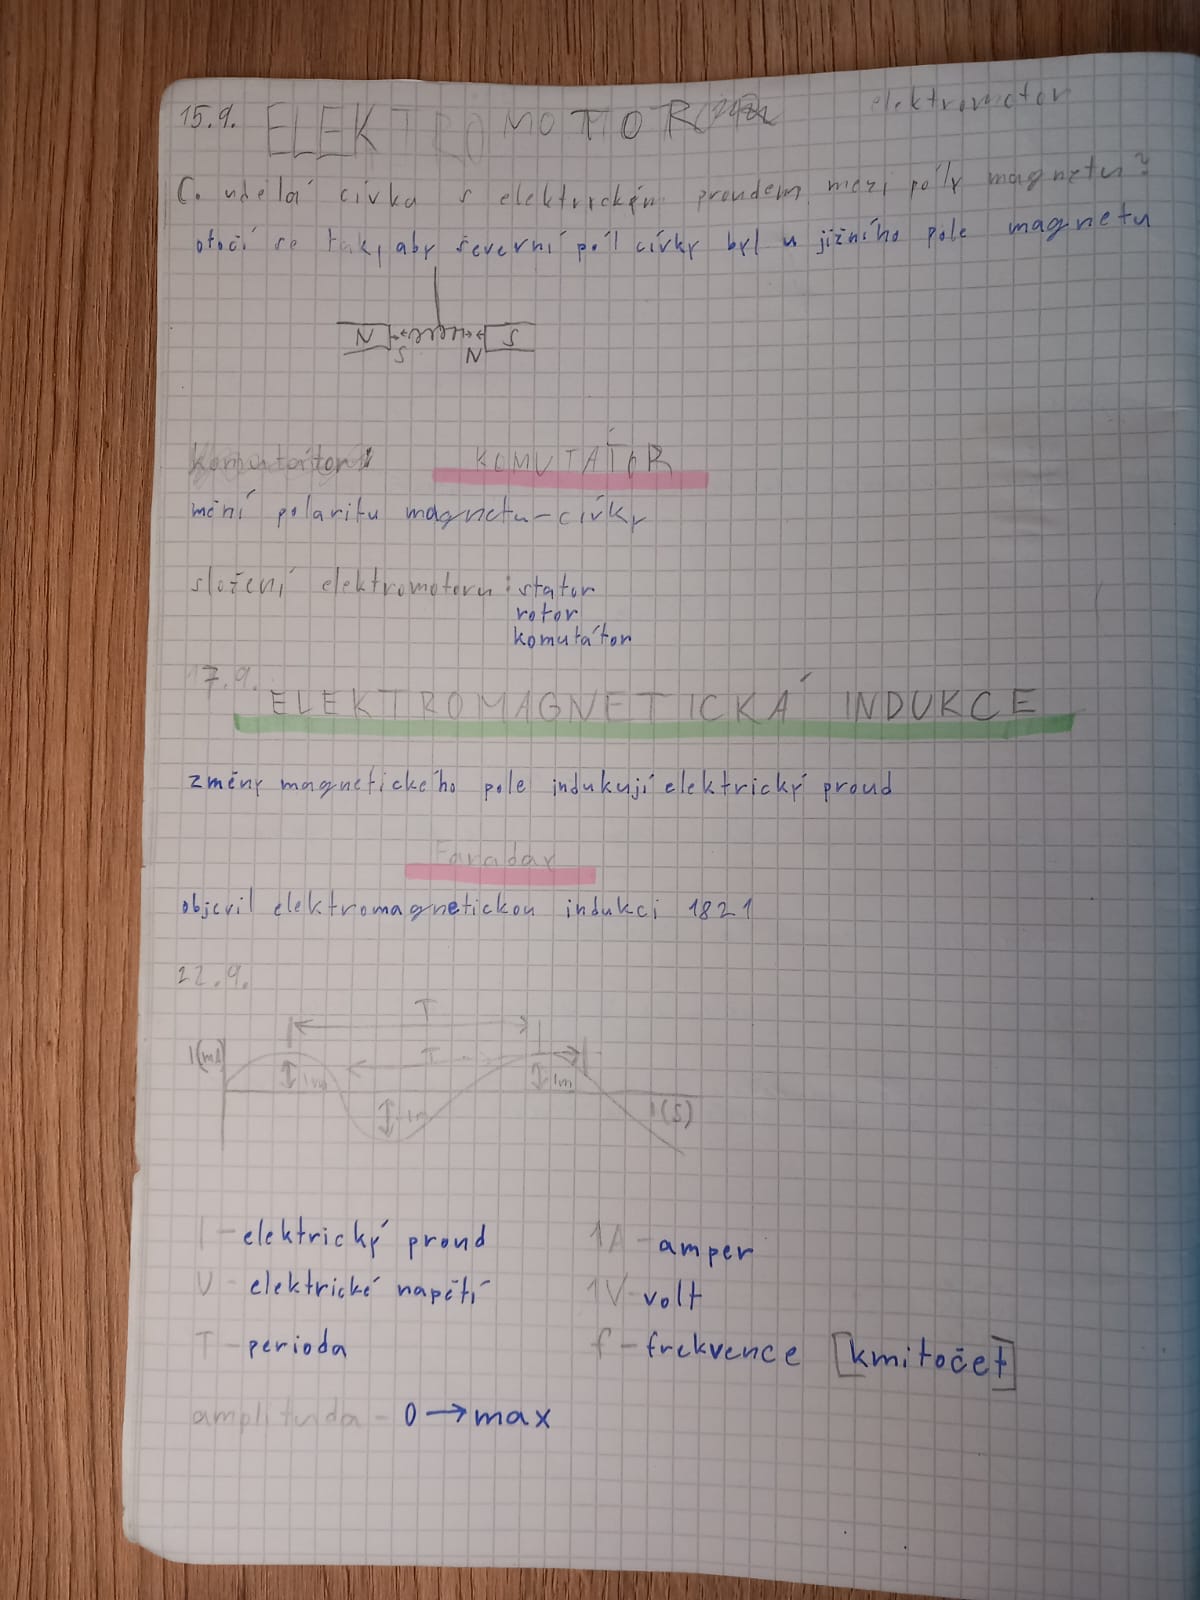 15.9. ELEKTROMOTOR elektromotor
Co udělá cívka s elektrickým proudem mezi póly magnetu?
otočí se tak, aby severní pól cívky byl u jižního pole magnetu
N S
S N
Komutátor KOMUTÁTOR
mění polaritu magnetu-cívky
složení elektromotoru: stator
rotor
komutátor
17.9.
ELEKTROMAGNETICKÁ INDUKCE
změny magnetického pole indukují elektrický proud
Faraday
objevil elektromagnetickou indukci 1821
22.9.
T
I(mA) T
Im Im
Im t(S)
I - elektrický proud 1A - amper
U - elektrické napětí 1V - volt
T - perioda f - frekvence [kmitočet]
amplituda - 0→max